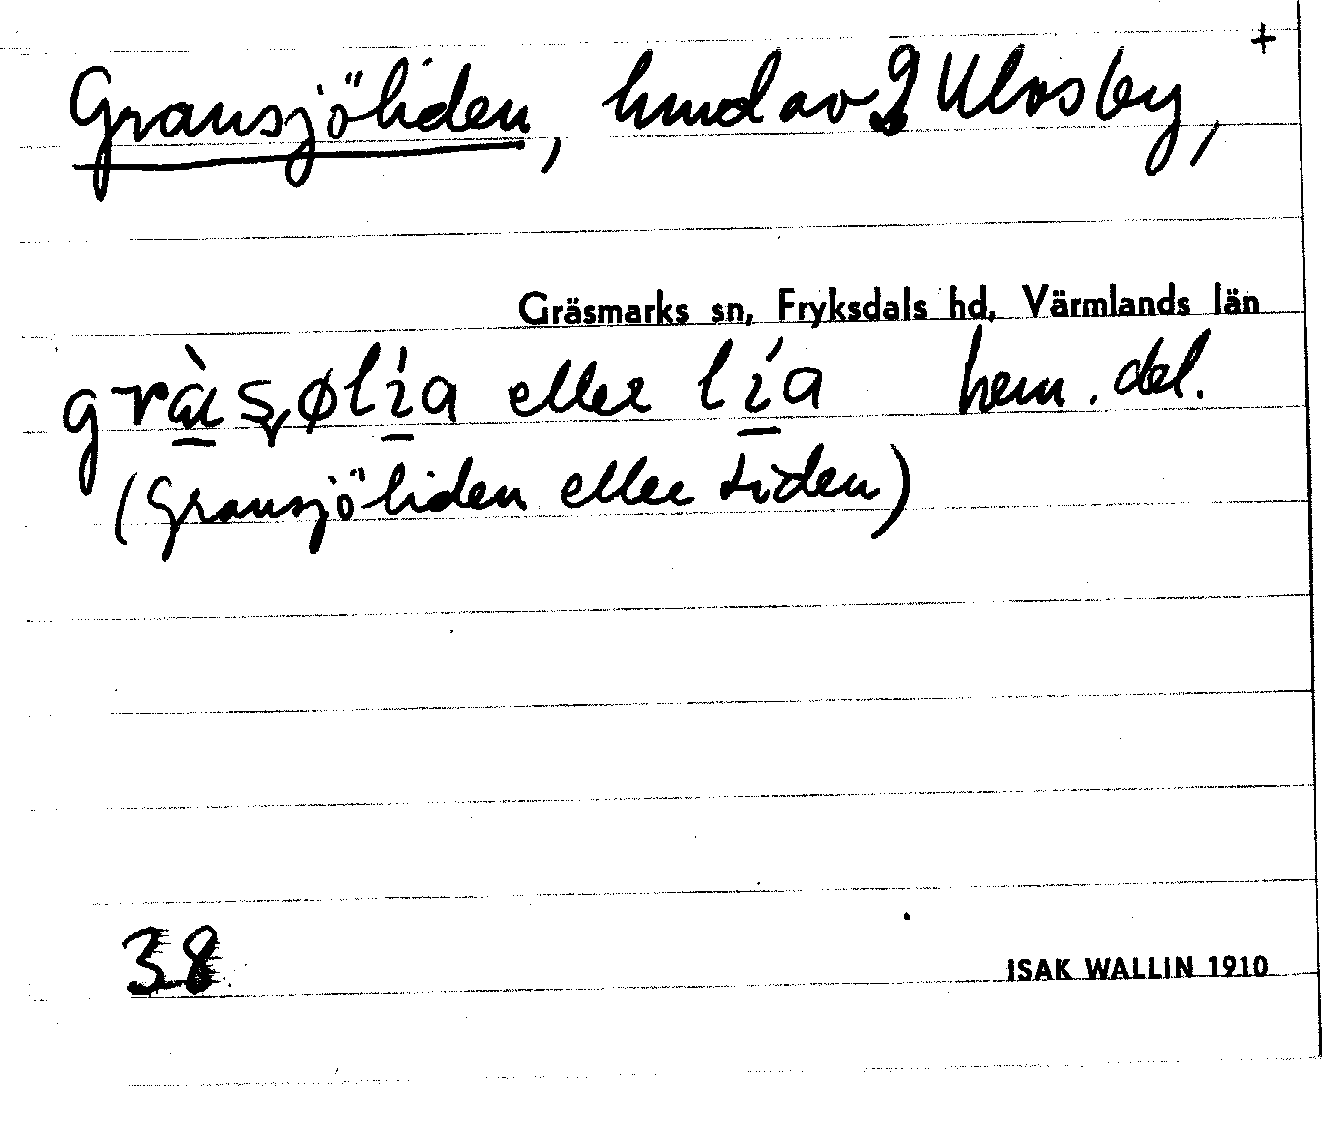 +
Gransjöliden, hmd av 2 Ulvsby,
Gräsmarks sn, Fryksdals hd, Värmlands län
eller lía hem. del.
(Gransjöliden eller Liden)
38
ISAK WALLIN 1910